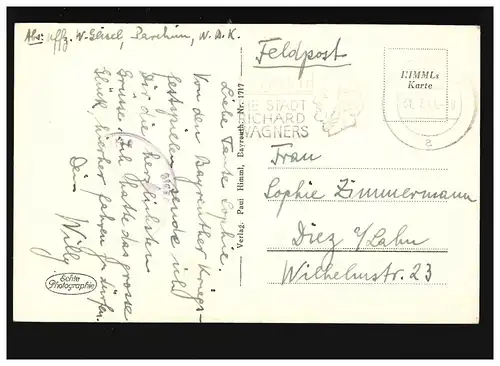 Abs: Uffz. W. Geisel, Parchim, N.A.K.
Feldpost
HIMMLs
Karte
DIE STADT
RICHARD
WAGNERS
a
Liebe Tante Sophie.
Von den Bayreuther Kriegs-
festspielen sende ich
Dir die herzlichsten
Grüsse. Ich hatte das grosse
Glück, hierher fahren zu dürfen.
Dein Willy
Echte
Photographie
Verlag: Paul Himml, Bayreuth, Nr. 1717
Frau
Sophie Zimmermann
Diez a/Lahn
Wilhelmstr. 23